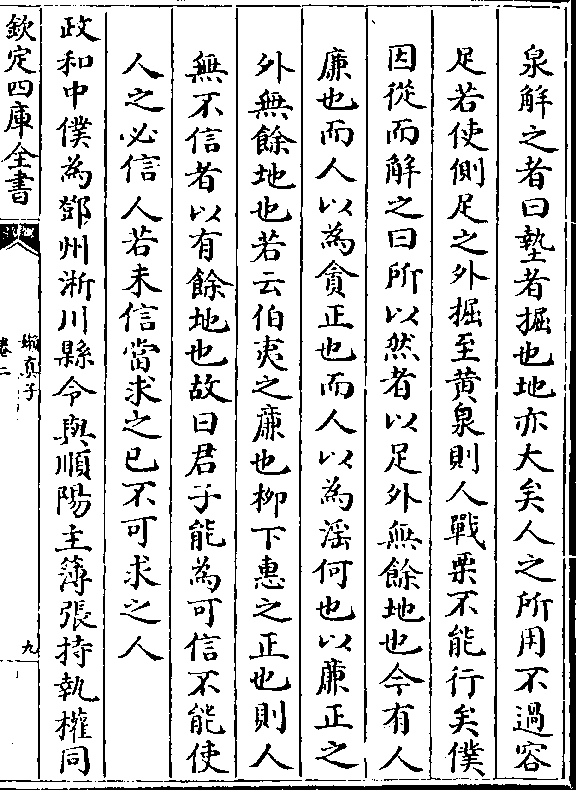 泉解之者曰墊者掘也地亦大矣人之所用不過容
足若使側足之外掘至黄泉則人戰栗不能行矣僕
因從而解之曰所以然者以足外無餘地也今有人
廉也而人以為貪正也而人以為滛何也以廉正之
外無餘地也若云伯夷之廉也柳下惠之正也則人
無不信者以有餘地也故曰君子能為可信不能使
人之必信人若未信當求之已不可求之人
政和中僕為鄧州淅川縣令與順陽主簿張持執權同
欽定四庫全書
嬾真子
卷二
九